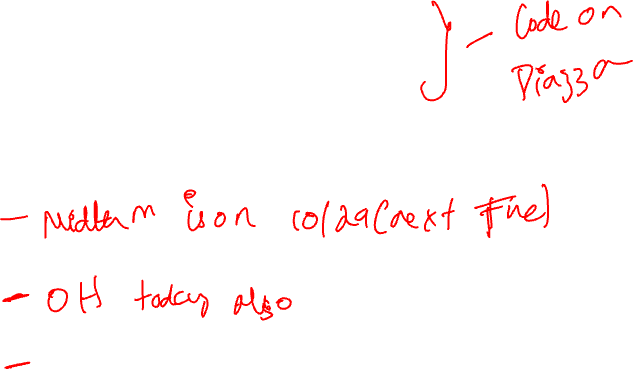 } - Code on
Piazza
- Midterm is on 10/29 (next Tue)
- OH today also
-